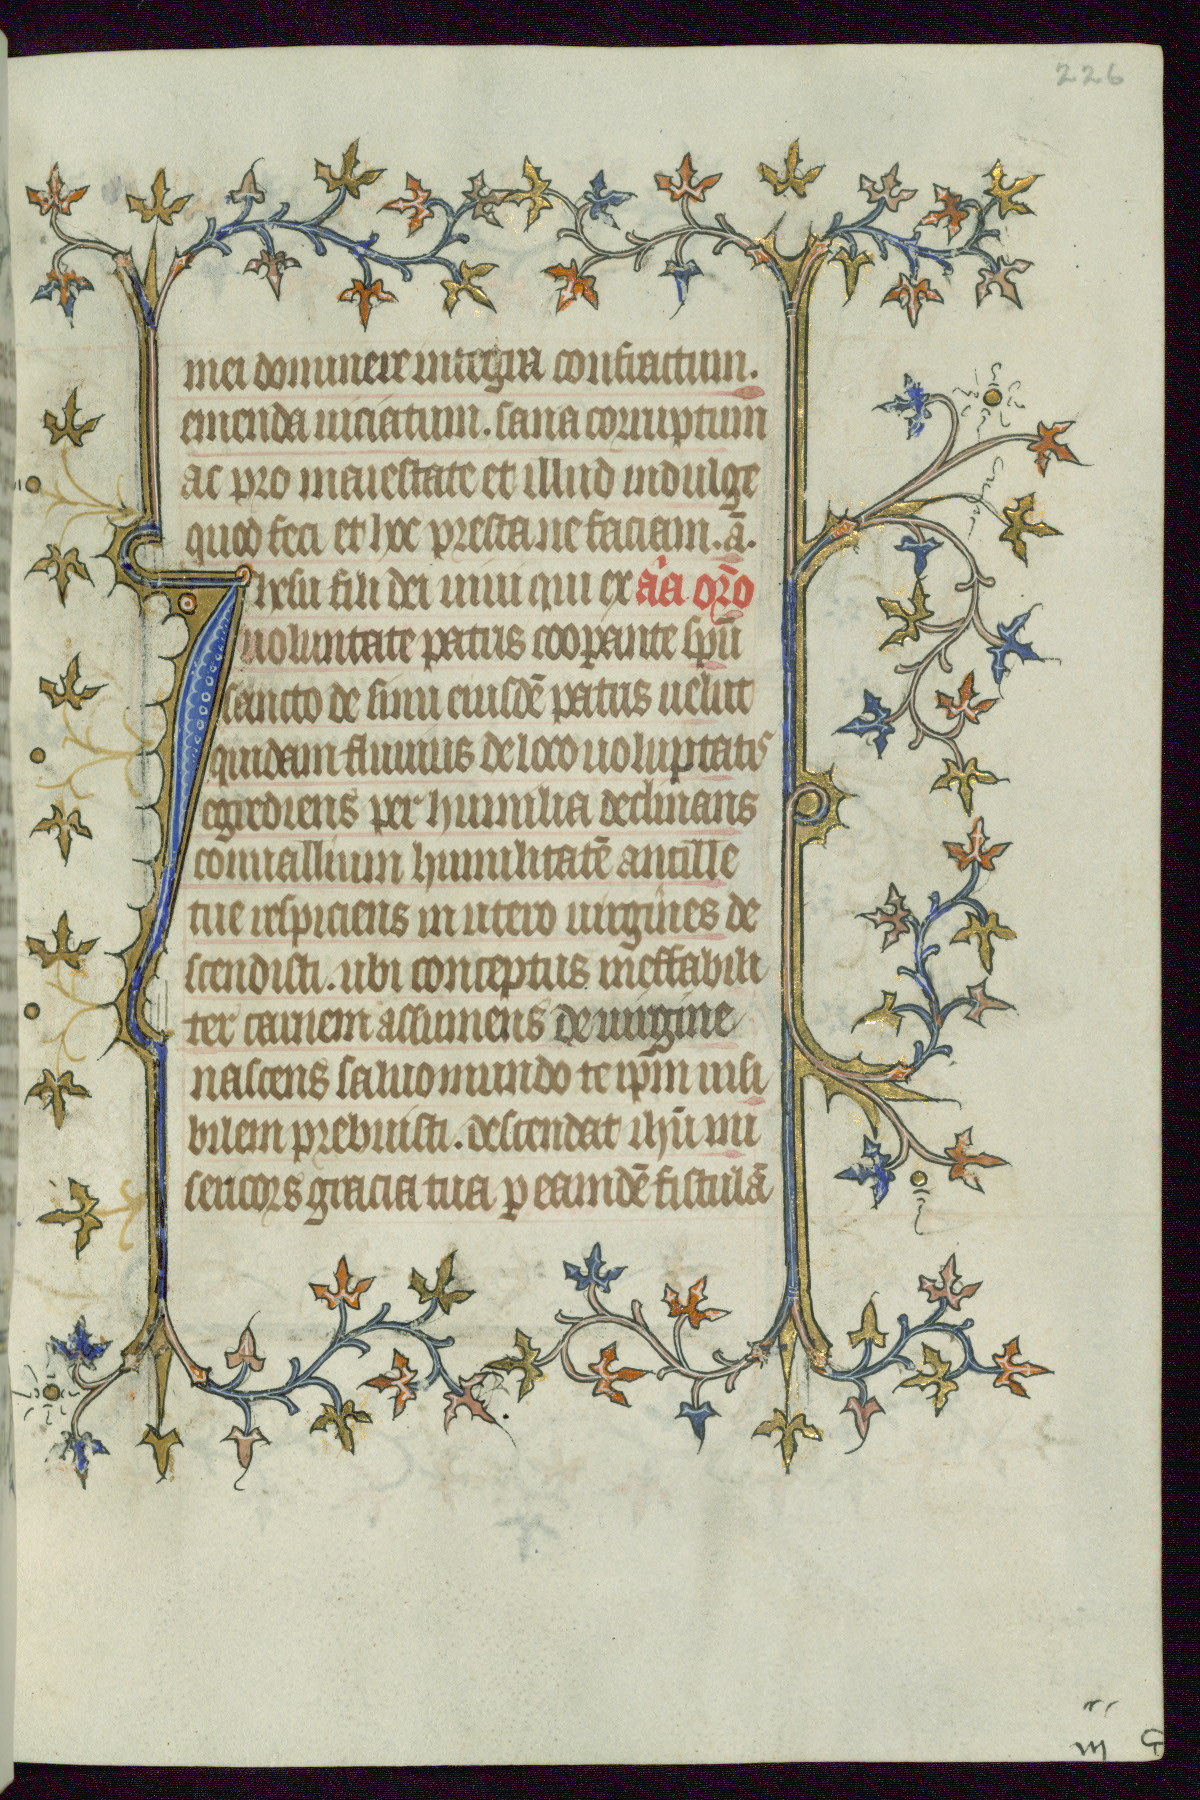 226
mei domine re integra confractum.
emenda uiciatum. sana corruptum
ac pro maiestate et illud indulge
quod feci et hoc presta ne faciam. am̄.
Ihesu fili dei uiui qui ex alia or̄o
uoluntate patris coop̲ante sp̄u
sancto de sinu eiusdē patris uelut
quidam fluuius de loco uoluptatis
egrediens per humilia declinans
conuallium humilitatē ancille
tue respiciens in utero uirginis de
scendisti. ubi conceptus ineffabili
ter carnem assumens de uirgine
nascens saluo mundo te ip̄m uisi
bilem prebuisti. descendat ihū mi
sericors gracia tua p̲ eamdē fistulā